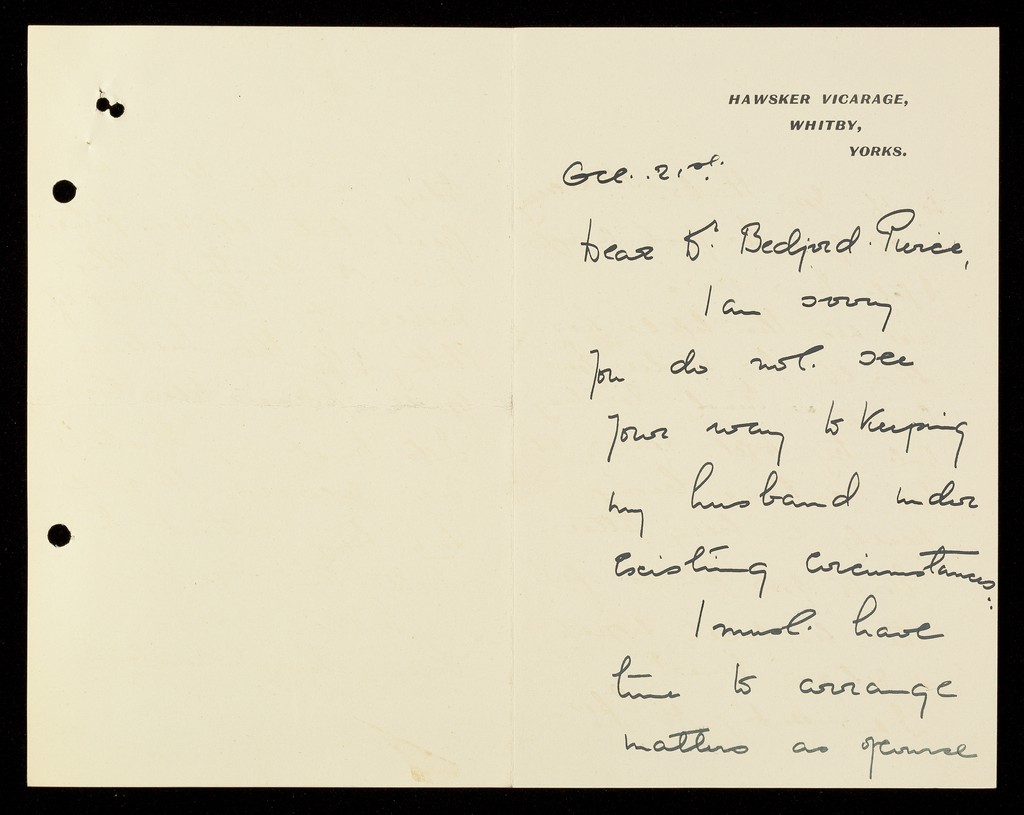 HAWSKER VICARAGE,
WHITBY,
YORKS.
Oct. 21st.
Dear Dr. Bedford Pierce,
I am sorry
you do not see
your way to keeping
my husband under
existing circumstances:
I must have
time to arrange
matters as of course